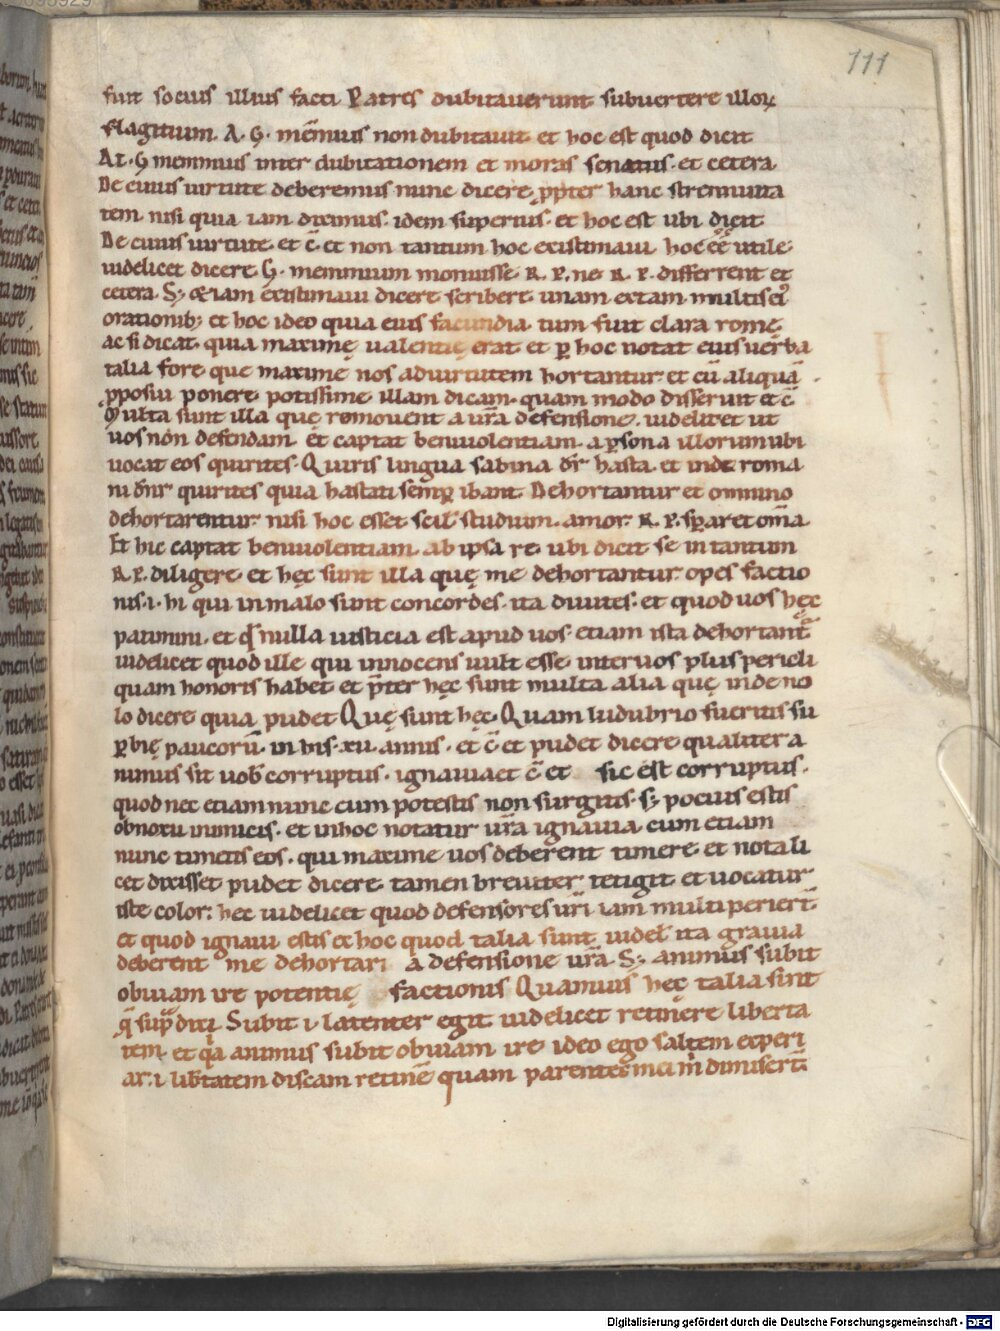 111
fuit socius illius facti Patres dubitauerunt subuertere illoꝝ
flagitium. A. G. mēmius non dubitauit et hoc est quod dicit
At. G memmius inter dubitationem et moras senatus. et cetera
De cuius uirtute deberemus nunc dicere ꝓpter hanc strennuita
tem. nisi quia iam diximus. idem superius. et hoc est ubi dicit
De cuius uirtute. et c̄ et non tantum hoc existimaui hoc eē utile.
uidelicet dicere. G. memmium monuisse. R. P. ne R. P. differrent et
cetera. S; etiam existimaui dicere scribere unam extam multis ei᷒
orationib; et hoc ideo quia eius facundia tum fuit clara romę.
ac si dicat. quia maxime ualentię erat. et ꝑ hoc notat eius uerba
talia fore que maxime nos ad uirtutem hortantur. et cū aliquā
ꝓposui ponere potissime illam dicam. quam modo disseruit et c̄
Multa sunt illa quę remouent a ur̄a defensione. uidelicet ut
uos non defendam. et captat beniuolentiam. a ꝑsona illorum ubi
uocat eos quirites. Quiris lingua sabina dr̄ hasta. et inde roma
ni dn̄r quirites quia hastati semꝑ ibant. Dehortantur et omnino
dehortarentur. nisi hoc esset scil' studium. amor. R. P. suꝑaret om̄a
Et hic captat beniuolentiam. ab ipsa re. ubi dicit se in tantum
R. P. diligere. et hęc sunt illa quę me dehortantur. opes factio
nis. i. hi qui in malo sunt concordes. ita diuites. et quod uos hęc
patimini. et qđ nulla iusticia est apud uos. etiam ista dehortant̄
uidelicet quod ille qui innocens uult esse. inter uos plus pericli
quam honoris habet et p̄ter hęc sunt multa alia quę inde no
lo dicere quia pudet Quę sunt hęc. Quam ludubrio fueritis su
ꝑbię paucorū. in his. xv. annis. et c̄ et pudet dicere qualiter a
nimus sit uob̄ corruptus. ignauia et c̄ et sic est corruptus.
quod nec etiam nunc cum potestis non surgitis. s; pocius estis
obnoxii inimicis. et in hoc notatur ur̄a ignauia. cum etiam
nunc timetis eos. qui maxime uos deberent timere. et nota li
cet dixisset pudet dicere. tamen breuiter tetigit et uocatur
iste color: hęc uidelicet quod defensores ur̄i iam multi perier̄t
et quod ignaui estis et hoc quod talia sunt uidel' ita grauia
deberent me dehortari a defensione ur̄a. S; animus subit
obuiam ire potentię factionis Quamuis hęc talia sint
q̄ sup̄ dixi. Subit. i. latenter egit uidelicet retinere liberta
tem. et qa animus subit obuiam ire. ideo ego saltem experi
ar. i. lib̄tatem discam retinē quam parentes mei m dimiser̄t.
Digitalisierung gefördert durch die Deutsche Forschungsgemeinschaft - DFG